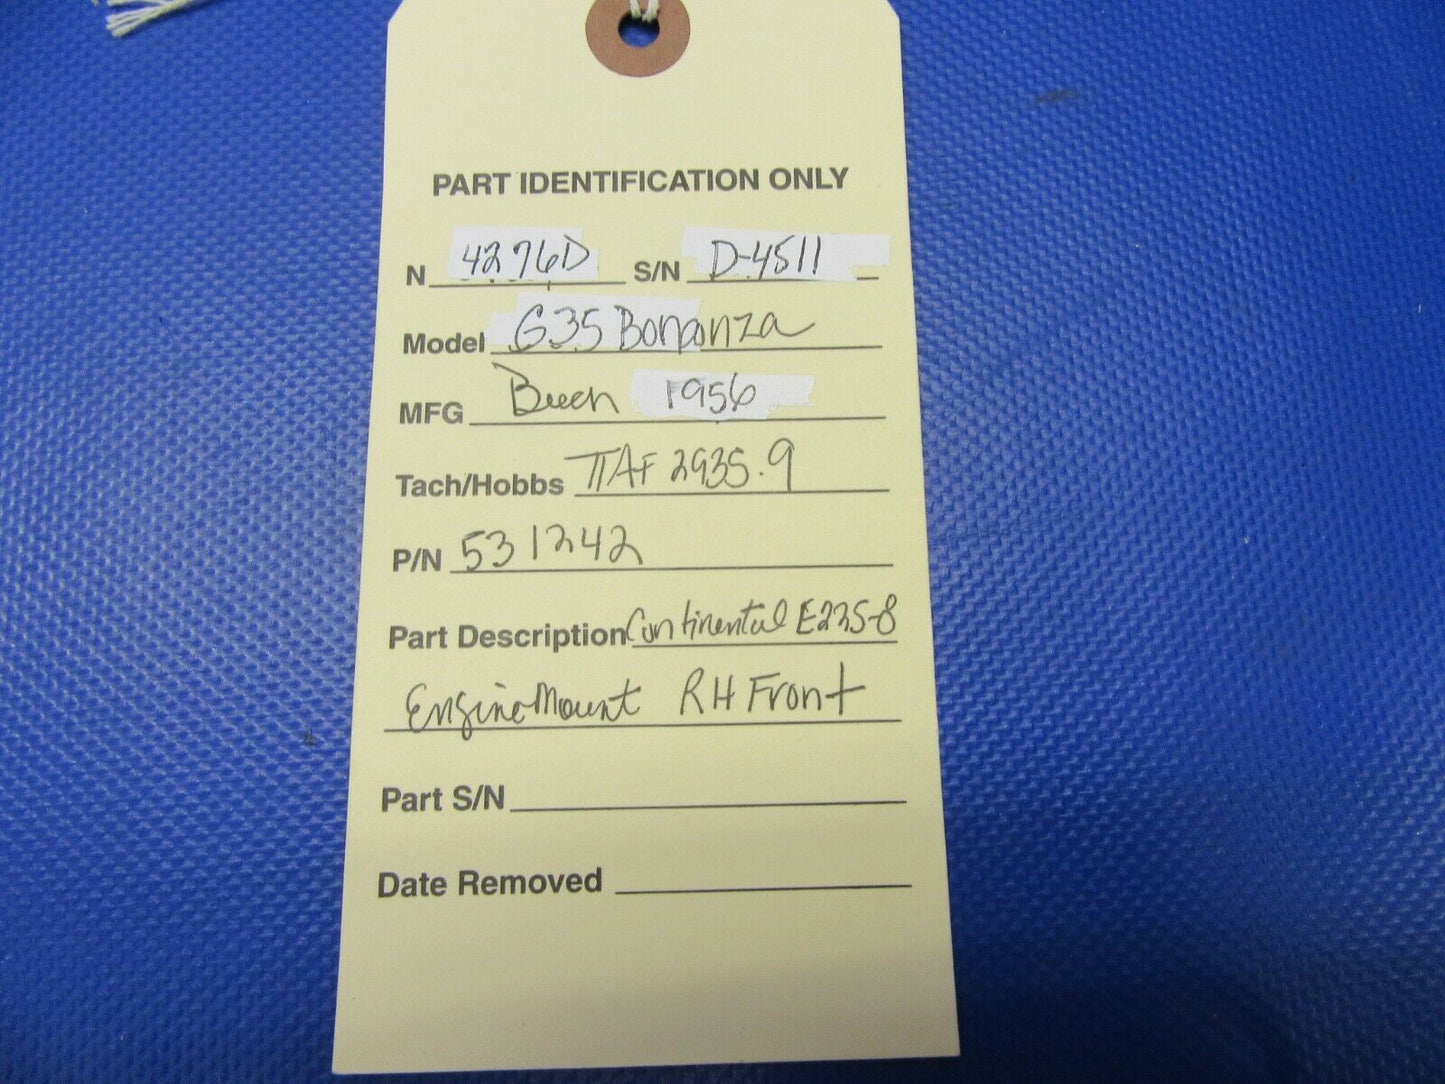 PART IDENTIFICATION ONLY
N 4276D S/N D-4511
Model G35 Bonanza
MFG Beech 1956
Tach/Hobbs TTAF 2935.9
P/N 531242
Part Description Continental E225-8
Engine Mount RH Front
Part S/N
Date Removed